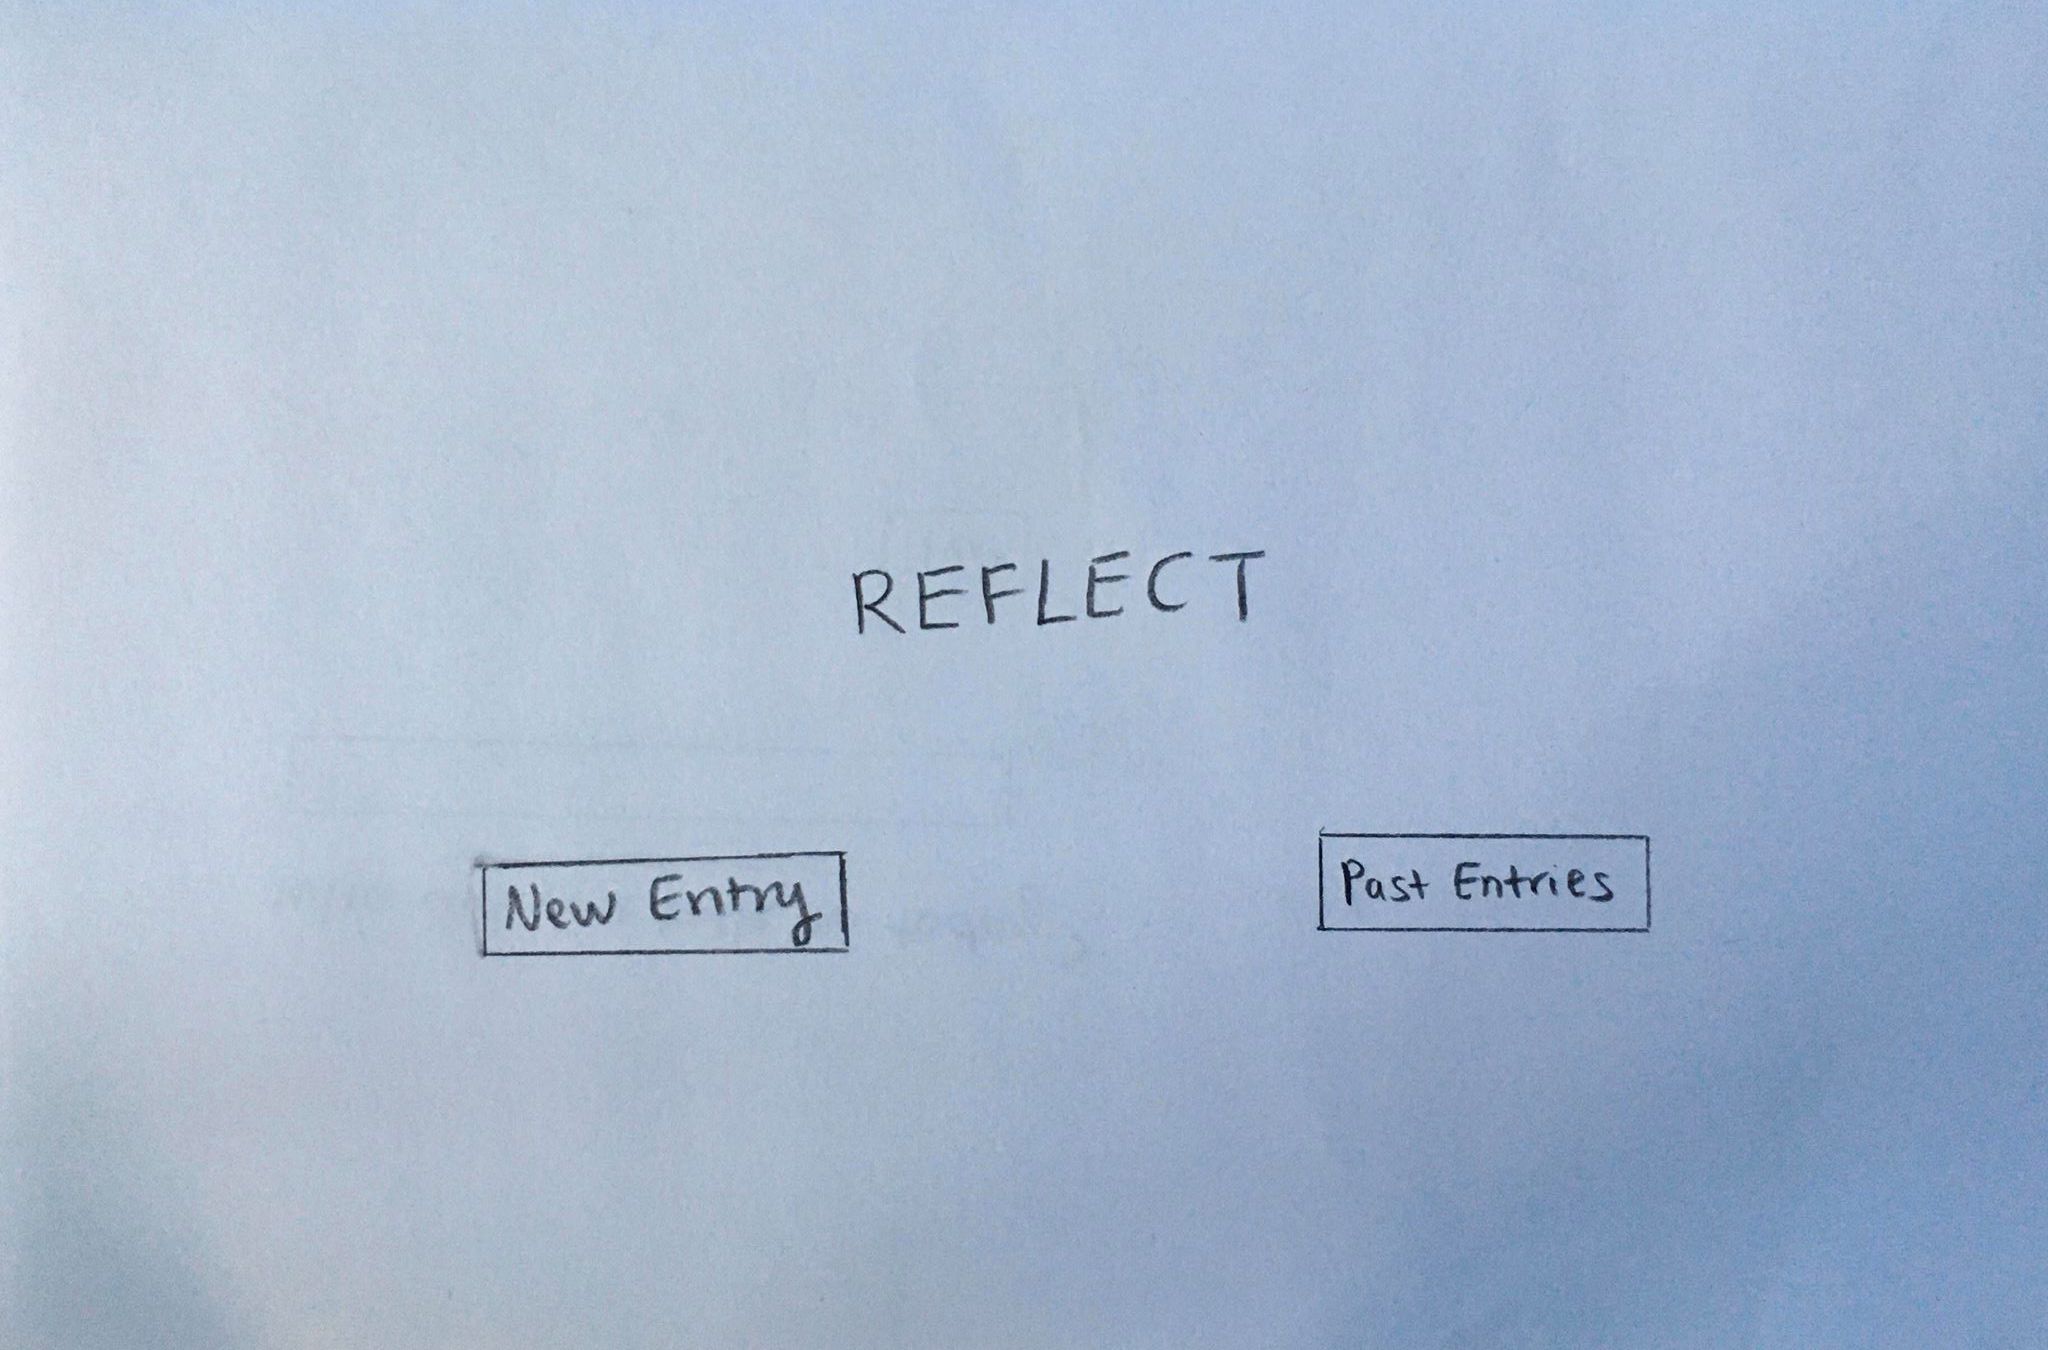 REFLECT
New Entry
Past Entries